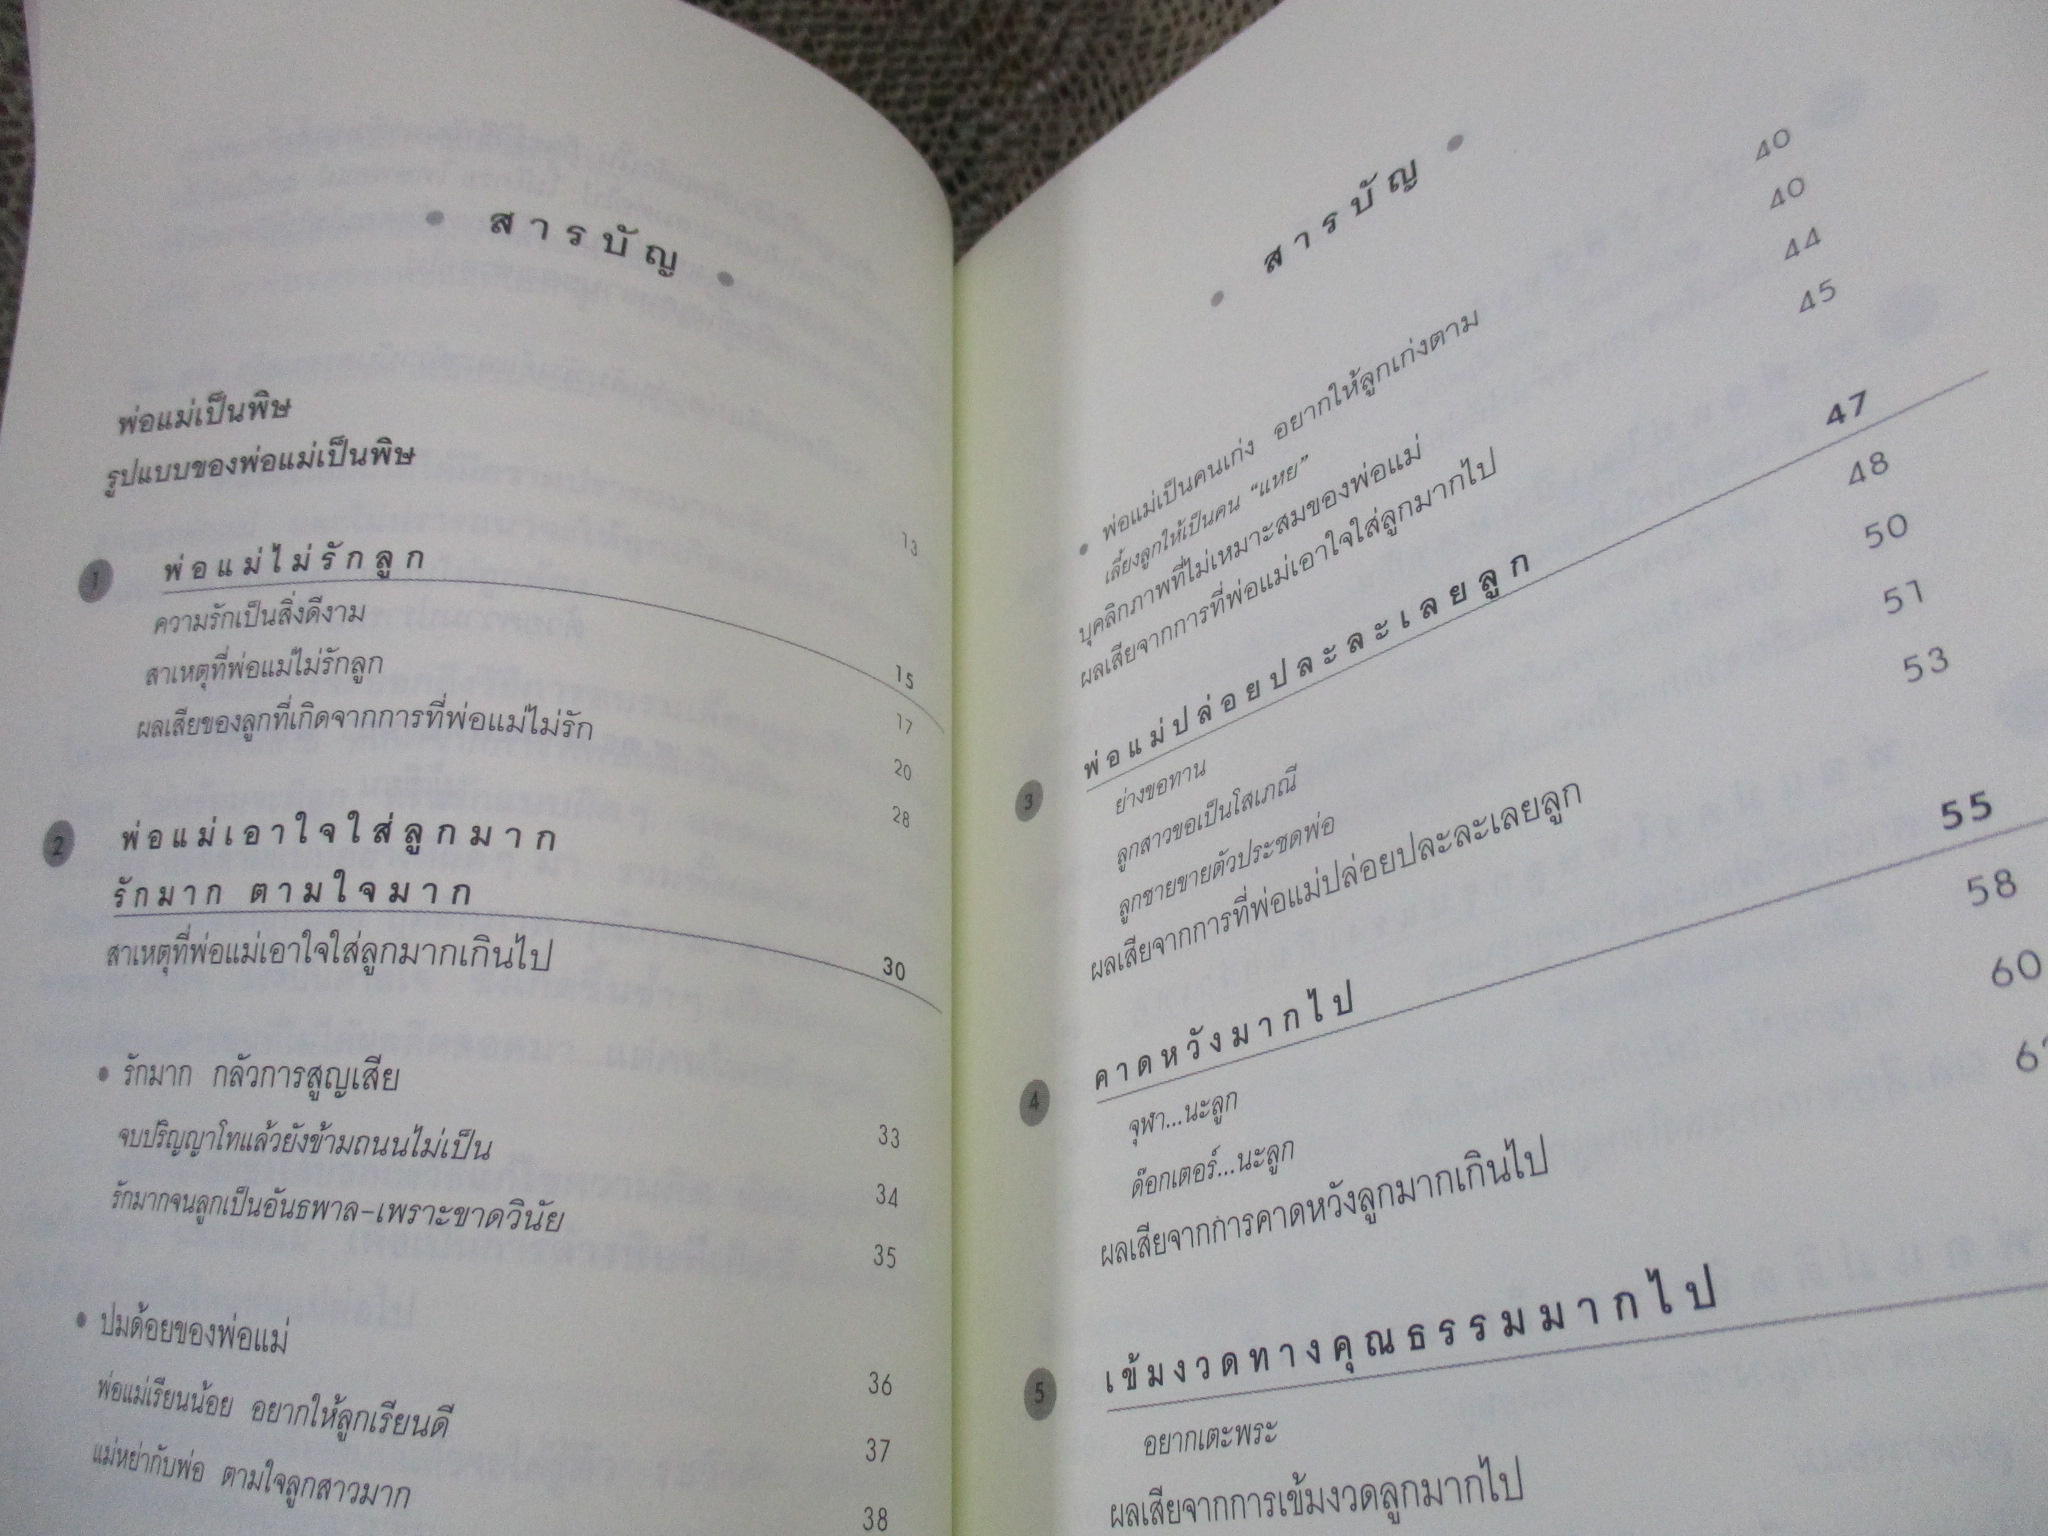 • สารบัญ •
พ่อแม่เป็นพิษ
รูปแบบของพ่อแม่เป็นพิษ 13
1 พ่อแม่ไม่รักลูก 15
ความรักเป็นสิ่งดีงาม 17
สาเหตุที่พ่อแม่ไม่รักลูก 20
ผลเสียของลูกที่เกิดจากการที่พ่อแม่ไม่รัก 28
2 พ่อแม่เอาใจใส่ลูกมาก
รักมาก ตามใจมาก 30
สาเหตุที่พ่อแม่เอาใจใส่ลูกมากเกินไป
• รักมาก กลัวการสูญเสีย 33
จบปริญญาโทแล้วยังข้ามถนนไม่เป็น 34
รักมากจนลูกเป็นอันธพาล-เพราะขาดวินัย 35
• ปมด้อยของพ่อแม่ 36
พ่อแม่เรียนน้อย อยากให้ลูกเรียนดี 37
แม่หย่ากับพ่อ ตามใจลูกสาวมาก 38
• สารบัญ •
• พ่อแม่เป็นคนเก่ง อยากให้ลูกเก่งตาม 40
เลี้ยงลูกให้เป็นคน “แหย” 40
บุคลิกภาพที่ไม่เหมาะสมของพ่อแม่ 44
ผลเสียจากการที่พ่อแม่เอาใจใส่ลูกมากไป 45
3 พ่อแม่ปล่อยปละละเลยลูก 47
ย่างขอทาน 48
ลูกสาวขอเป็นโสเภณี 50
ลูกชายขายตัวประชดพ่อ 51
ผลเสียจากการที่พ่อแม่ปล่อยปละละเลยลูก 53
4 คาดหวังมากไป 55
จุฬา...นะลูก 58
ด๊อกเตอร์...นะลูก 60
ผลเสียจากการคาดหวังลูกมากเกินไป
5 เข้มงวดทางคุณธรรมมากไป
อยากเตะพระ
ผลเสียจากการเข้มงวดลูกมากไป